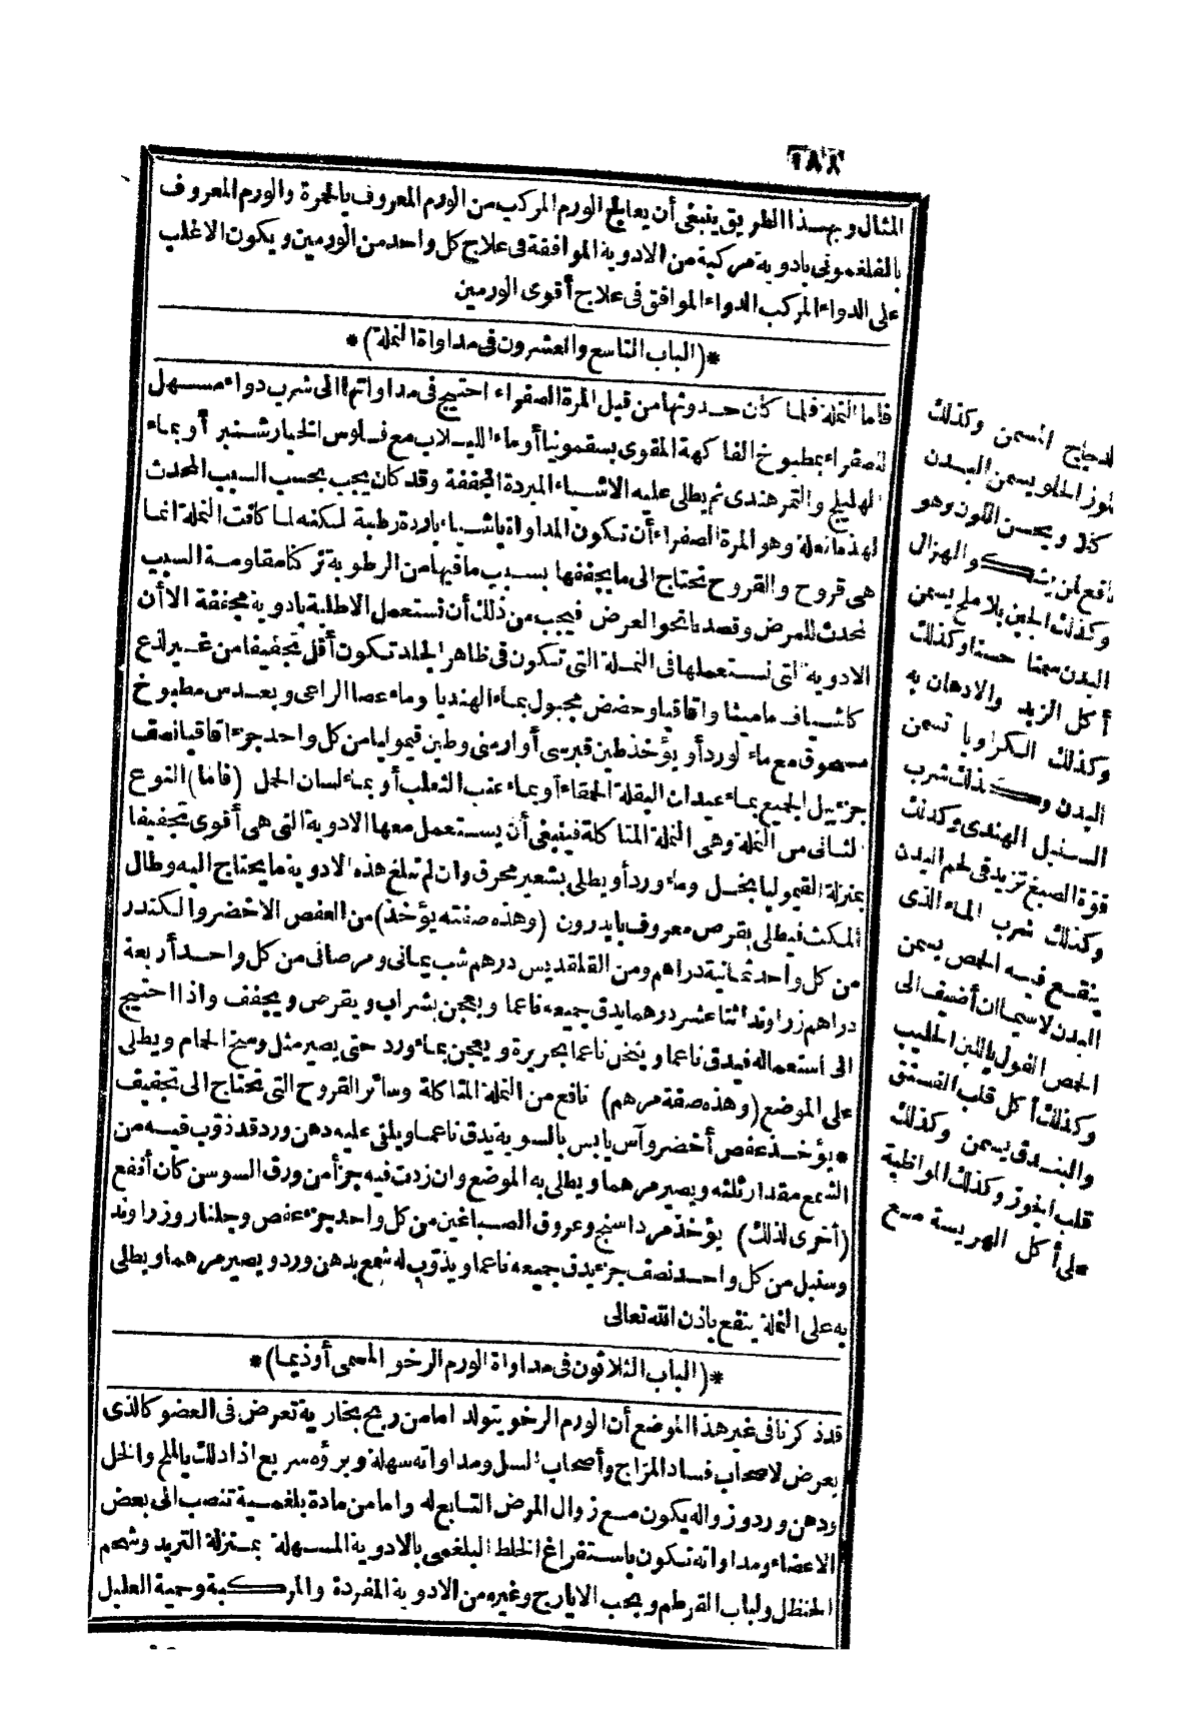 ٢٨٢
المثال وبهذا الطريق ينبغى أن يعالج الورم المركب من الورم المعروف بالحمرة والورم المعروف
بالفلغمونى بادوية مركبة من الادوية الموافقة فى علاج كل واحد من الورمين ويكون الاغلب
على الدواء المركب الدواء الموافق فى علاج أقوى الورمين
*(الباب التاسع والعشرون فى مداواة النملة)*
فاما النملة فلما كان حدوثها من قبل المرة الصفراء احتيج فى مداواتها الى شرب دواء مسهل
للصفراء بمطبوخ الفاكهة المقوى بسقمونيا أو ماء اللبلاب مع فلوس الخيار شنبر أو بماء
الهليلج والتمر هندى ثم يطلى عليه الاشياء المبردة المجففة وقد كان يجب بحسب السبب المحدث
لهذه مانعلة وهو المرة الصفراء أن تكون المداواة باشياء باردة رطبة لكنه لما كانت النملة انما
هى قروح والقروح تحتاج الى ما يجففها بسبب ما فيها من الرطوبة تركنا مقاومة السبب
المحدث للمرض وقصدنا نحو العرض فيجب من ذلك أن تستعمل الاطلية بادوية مجففة الا أن
الادوية التى نستعملها فى النملة التى تكون فى ظاهر الجلد تكون أقل تجفيفا من غير لذع
كاشياف ماميثا واقاقيا وحضض مجبول بماء الهنديا وماء عصا الراعى وبعدس مطبوخ
مسحوق مع ماء لورد أو يؤخذ طين قبرسى أو ارمنى وطين قيموليا من كل واحد جزء اقاقيا نصف
جزء يبل الجميع بماء عيدان البقلة الحمقاء أو بماء عنب الثعلب أو بماء لسان الحمل (فاما) النوع
الثانى من النملة وهى النملة المتاكلة فينبغى أن يستعمل معها الادوية التى هى أقوى تجفيفا
بمنزلة القيموليا بخل وماء ورد أو يطلى بشعير محرق وان لم تبلغ هذه الادوية ما يحتاج اليه وطال
المكث فيطلى بقرص معروف بايدرون (وهذه صفته يؤخذ) من العفص الاخضر والكندر
من كل واحد ثمانية دراهم ومن القلقديس درهم شب يمانى ومر صافى من كل واحد أربعة
دراهم زراوند اثنا عشر درهما يدق جميعه ناعما ويعجن بشراب ويقرص ويجفف واذا احتيج
الى استعماله فيدق ناعما وينخل ناعما بحريرة ويعجن بماء ورد حتى يصير مثل وسخ الحمام ويطلى
على الموضع (وهذه صفة مرهم) نافع من النملة المتاكلة وسائر القروح التى تحتاج الى تجفيف
*يؤخذ عفص أخضر وآس يابس بالسوية يدق ناعما ويلقى عليه دهن ورد قد ذوّب فيه من
الشمع مقدار ثلثه ويصير مرهما ويطلى به الموضع وان زدت فيه جزأ من ورق السوسن كان أنفع
(أخرى لذلك) يؤخذ مرداسنج وعروق الصباغين من كل واحد جزء عفص وجلنار وزراوند
وسنبل من كل واحد نصف جزء يدق جميعه ناعما ويذوّب له شمع بدهن ورد ويصير مرهما ويطلى
به على النملة ينفع باذن الله تعالى
*(الباب الثلاثون فى مداواة الورم الرخو المسمى أوذيما)*
قد ذكرنا فى غير هذا الموضع أن الورم الرخو يتولد اما من ريح بخارية تعرض فى العضو كالذى
يعرض لاصحاب فساد المزاج وأصحاب السل ومداواته سهلة وبرؤه سريع اذا دلك بالملح والخل
ودهن ورد وزواله يكون مع زوال المرض التابع له واما من مادة بلغمية تنصب الى بعض
الاعضاء ومداواته تكون باستفراغ الخلط البلغمى بالادوية المسهلة بمنزلة التربد وشحم
الحنظل ولباب القرطم وبحب الايارج وغيره من الادوية المفردة والمركبة وحمية العليل
لدجاج المسمن وكذلك
لوز الحلو يسمن البدن
كذا ويحسن اللون وهو
نافع لمن يشك والهزال
وكذلك الجبن بلا ملح يسمن
البدن سمنا حسنا وكذلك
أكل الزبد والادهان به
وكذلك الكراويا تسمن
البدن وكذلك شرب
السنبل الهندى وكذلك
قوة الصبغ تزيد فى لحم البدن
وكذلك شرب الماء الذى
ينقع فيه الحمص يسمن
البدن لا سيما ان أضيف الى
الحمص الفول باللبن الحليب
وكذلك أكل قلب الفستق
والبندق يسمن وكذلك
قلب الجوز وكذلك المواظبة
على أكل الهريسة مع